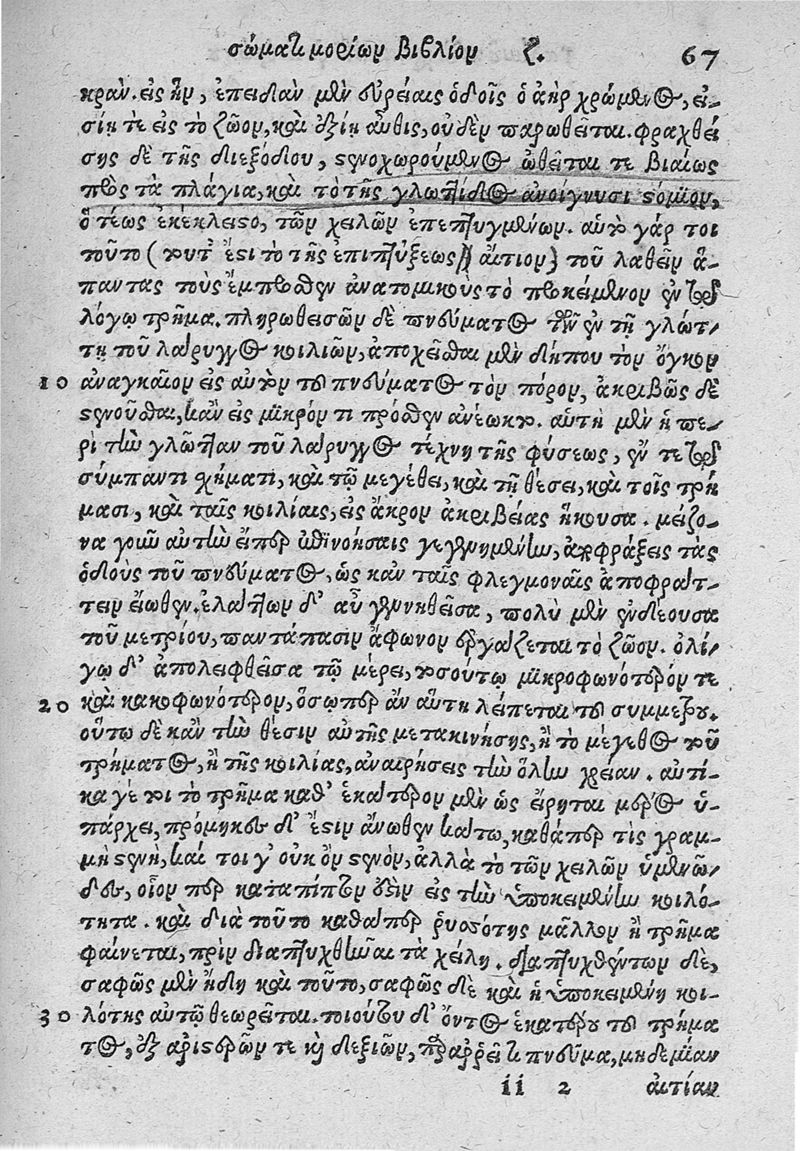 σώματι μορίων Βιβλίον ζ. 67
κραν. εἰς ἣν, ἐπειδὰν μὲν εὐρείαις ὁδοῖς ὁ ἀὴρ χρώμενος, εἰ-
σίῃ τε εἰς τὸ ζῶον, καὶ ἐξίῃ αὖθις, οὐδὲν παρωθεῖται. φραχθεί
σης δὲ τῆς διεξόδου, στενοχωρούμενος ὠθεῖταί τε βιαίως
πρὸς τὰ πλάγια, καὶ τὸ τῆς γλωττίδος ἀνοίγνυσι στόμιον,
ὃ τέως ἐκέκλειστο, τῶν χειλῶν ἐπεπτυγμένων. αὐτὸ γάρ τοι
τοῦτο (τουτ' ἔστι τὸ τῆς ἐπιπτύξεως) αἴτιον τοῦ λαθεῖν ἅ-
παντας τοὺς ἔμπροσθεν ἀνατομικοὺς τὸ προκείμενον ἐν τῷ
λόγῳ τρῆμα. πληρωθεισῶν δὲ πνεύματος τῶν ἐν τῇ γλώτ-
τῃ τοῦ λάρυγγος κοιλιῶν, ἀποχεῖσθαι μὲν δήπου τὸν ὄγκον
10 ἀναγκαῖον εἰς αὐτὸν τοῦ πνεύματος τὸν πόρον, ἀκριβῶς δὲ
στενοῦσθαι, κἂν εἰς μικρόν τι πρόσθεν ἀνέῳκτο. αὕτη μὲν ἡ πε-
ρὶ τὴν γλῶτταν τοῦ λάρυγγος τέχνη τῆς φύσεως, ἔν τε τῷ
σύμπαντι σχήματι, καὶ τῷ μεγέθει, καὶ τῇ θέσει, καὶ τοῖς τρή
μασι, καὶ ταῖς κοιλίαις, εἰς ἄκρον ἀκριβείας ἥκουσα. μείζο-
να γοῦν αὐτὴν εἴπερ ἐπινοήσαις γεγενημένην, ἀποφράξεις τὰς
ὁδοὺς τοῦ πνεύματος, ὡς κἀν ταῖς φλεγμοναῖς ἀποφράτ-
τειν εἴωθεν. ἐλάττων δ' αὖ γεννηθεῖσα, πολὺ μὲν ἐνδέουσα
τοῦ μετρίου, παντάπασιν ἄφωνον ἐργάζεται τὸ ζῶον. ὀλί-
γῳ δ' ἀπολειφθεῖσα τῷ μέρει, τοσούτῳ μικροφωνότερόν τε
20 καὶ κακοφωνότερον, ὅσῳπερ ἂν αὕτη λείπεται τοῦ συμμέτρου.
οὕτω δὲ κἂν τὴν θέσιν αὐτῆς μετακινήσῃς, ἢ τὸ μέγεθος τοῦ
τρήματος, ἢ τῆς κοιλίας, ἀναιρήσεις τὴν ὅλην χρείαν. αὐτί-
κα γέ τοι τὸ τρῆμα καθ' ἑκάτερον μὲν ὡς εἴρηται μέρος ὑ-
πάρχει, πρόμηκες δ' ἔστιν ἄνωθεν κάτω, καθάπερ τις γραμ-
μὴ στενὴ, καί τοι γ' οὐκ ὂν στενὸν, ἀλλὰ τὸ τῶν χειλῶν ὑμενῶ-
δες, οἷον περ καταπίπτον ἐστὶν εἰς τὴν ὑποκειμένην κοιλό-
τητα. καὶ διὰ τοῦτο καθάπερ ῥυσότης μᾶλλον ἢ τρῆμα
φαίνεται, πρὶν διαπτυχθῆναι τὰ χείλη. διαπτυχθέντων δὲ,
σαφῶς μὲν ἤδη καὶ τοῦτο, σαφῶς δὲ καὶ ἡ ὑποκειμένη κοι-
30 λότης αὐτῷ θεωρεῖται. τοιούτου δ' ὄντος ἑκατέρου τοῦ τρήμα
τος, ἐξ ἀριστερῶν τε καὶ δεξιῶν, παραῤῥεῖ τὸ πνεῦμα, μηδεμίαν
ii 2 αἰτίαν